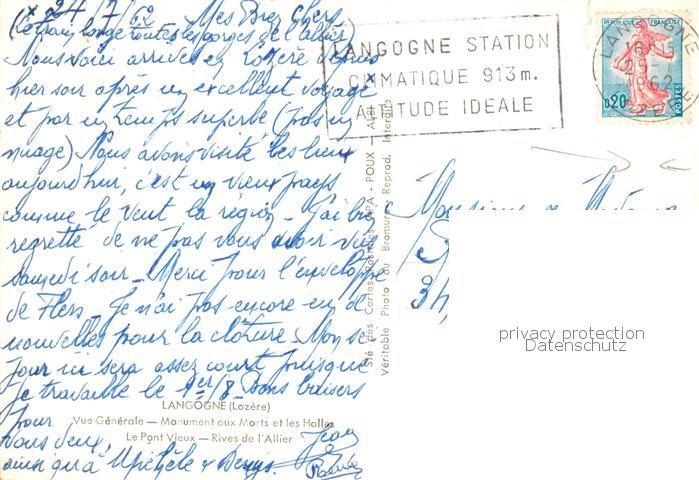 24/7/62 Mes Bien Chers
(Le train longe toutes les gorges de l'allier)
Nous voici arrivés en Lozère depuis
hier soir après un excellent voyage
et par un temps superbe (pas un
nuage) Nous avons visité les lieux
aujourd'hui, c'est un vieux pays
comme le veut la région - J'ai bien
regretté de ne pas vous avoir vu
samedi soir - Merci pour l'enveloppe
de Flers - Je n'ai pas encore eu de
nouvelles pour la clôture - Mon sé-
jour ici sera assez court puisque
je travaille le 1er/8 - Bons baisers
pour
vous deux,
ainsi qu'à Michèle & Denys -
Jean
LANGOGNE (Lozère)
Vue Générale — Monument aux Morts et les Halles
Le Pont Vieux — Rives de l'Allier
LANGOGNE STATION
CLIMATIQUE 913m.
ALTITUDE IDEALE
REPUBLIQUE FRANÇAISE
0,20
POSTES
LANGOGNE
1962
Sté des Cartes Postales APA - POUX - Albi
Véritable Photo au Bromure - Reprod. Interdite
Monsieur & Madame
34,
privacy protection
Datenschutz